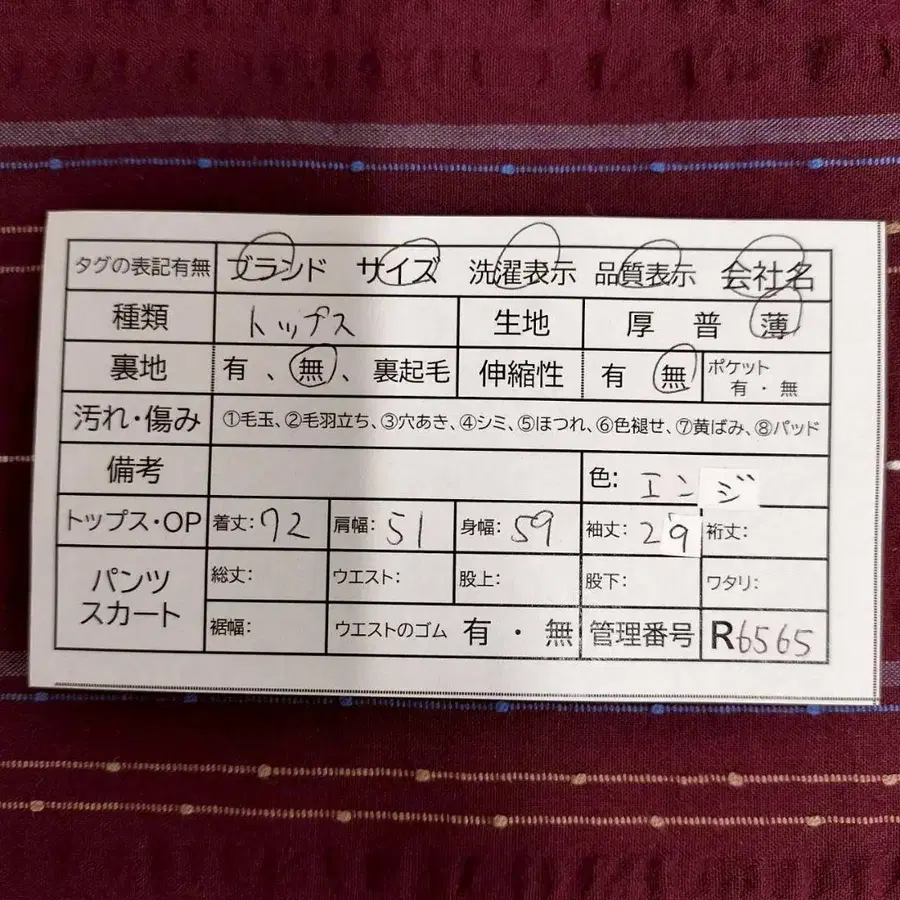 タグの表記有無 ブランド サイズ 洗濯表示 品質表示 会社名
種類 トップス 生地 厚 普 薄
裏地 有 、 無 、 裏起毛 伸縮性 有 無 ポケット 有 ・ 無
汚れ・傷み ①毛玉、②毛羽立ち、③穴あき、④シミ、⑤ほつれ、⑥色褪せ、⑦黄ばみ、⑧パッド
備考 色: エンジ
トップス・OP 着丈: 72 肩幅: 51 身幅: 59 袖丈: 29 裄丈:
パンツ スカート 総丈: ウエスト: 股上: 股下: ワタリ:
裾幅: ウエストのゴム 有 ・ 無 管理番号 R6565